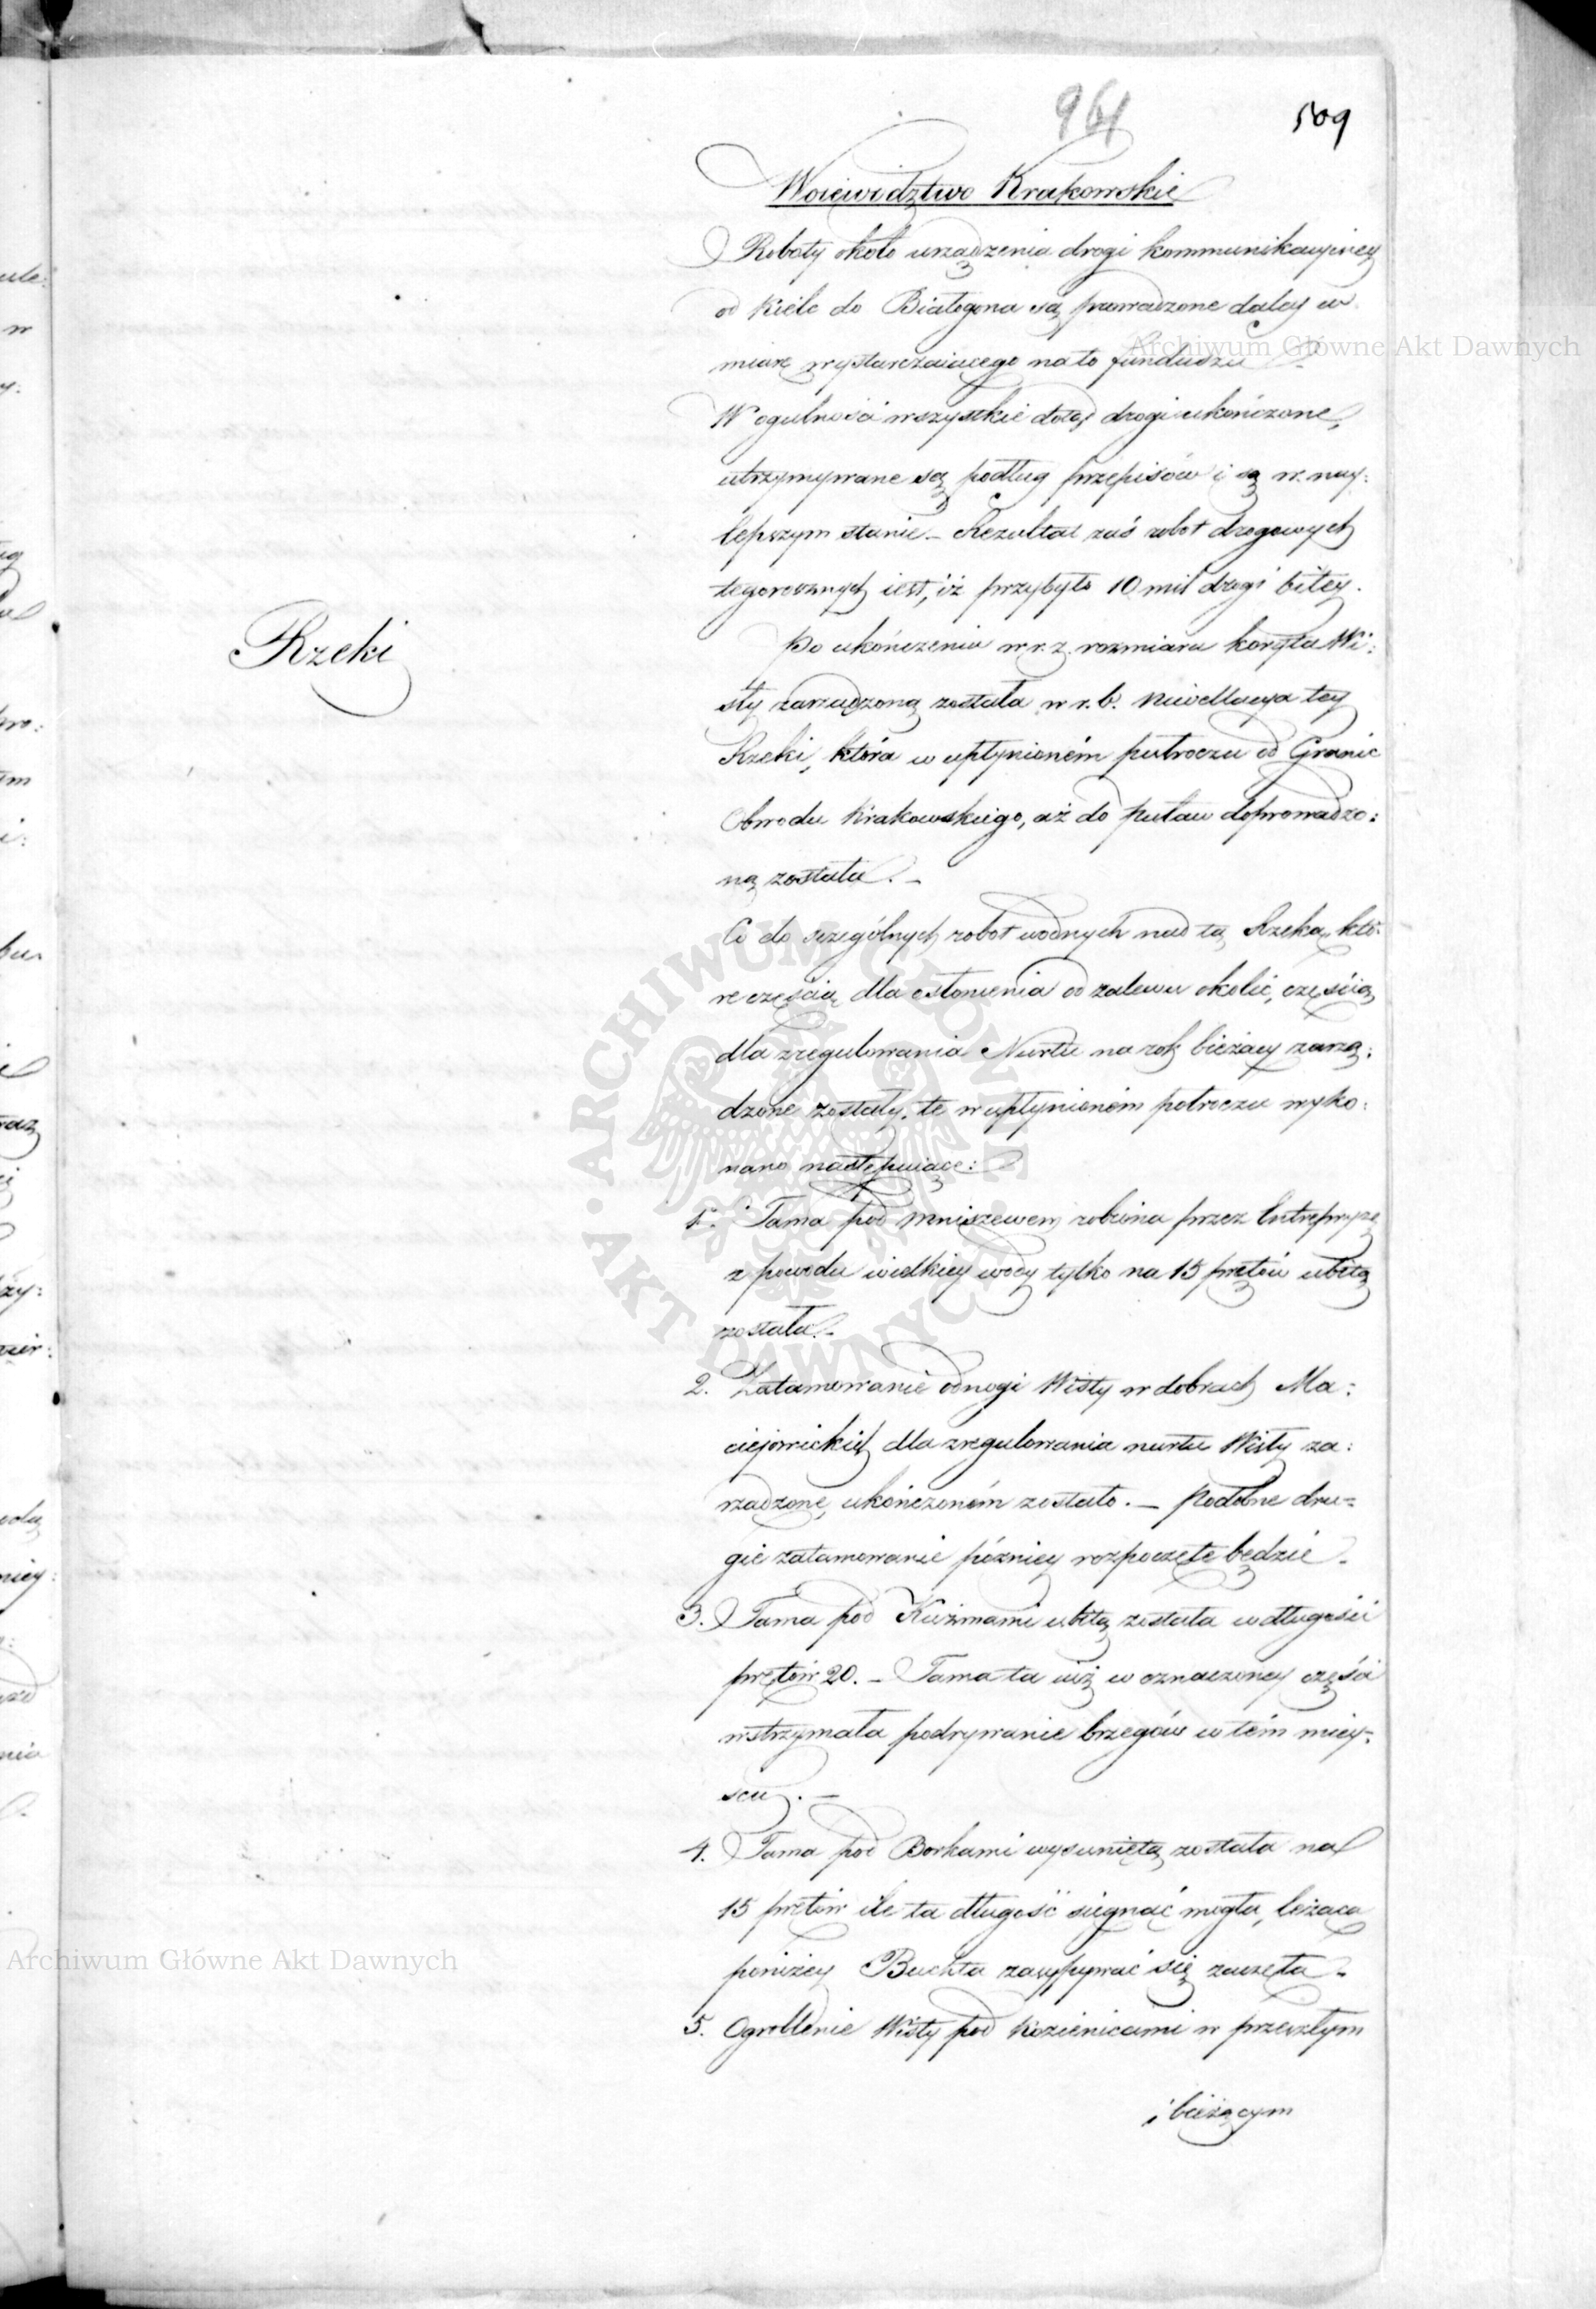 961
509
Woiewództwo Krakowskie
Roboty około urządzenia drogi kommunikacyiney
od Kielc do Białogona są prowadzone daley w
miarę wystarczaiącego na to funduszu
W ogulności wszystkie dotąd drogi ukończone,
utrzymywane są podług przepisów i są w nay:
lepszym stanie – Rezultat zaś robot drogowych
tegorocznych iest, iż przybyło 10 mil drogi bitey.
Rzeki
Po ukończeniu w r. z. rozmiaru koryta Wi:
sły zarządzoną została w r. b. Niwellacya tey
Rzeki, która w upłynioném pułroczu od Granic
Obwodu Krakowskiego, aż do Puław doprowadzo:
ną została. –
Co do szczególnych robot wodnych nad tą Rzeką, któ:
re częścią dla osłonienia od zalewu okolic, częścią
dla zregulowania Nurtu na rok bieżący zarzą:
dzone zostały, te w upłynioném półroczu wyko:
nano następuiące:
1. Tama pod Mniszewem robiona przez Entrepryzę
z powodu wielkiey wody tylko na 15 prętów ubitą
została. –
2. Zatamowanie odnogi Wisły w dobrach Ma:
ciejowickich dla zregulowania nurtu Wisły za:
rządzone, ukończoném zostało. – Podobne dru=
gie zatamowanie pózniey rozpoczęte będzie –
3. Tama pod Kuźmami ubitą została w długości
prętów 20. – Tama ta iuż w oznaczoney części
wstrzymała podrywanie brzegów w tém miey=
scu. –
4. Tama pod Borkami wysuniętą została na
15 prętów ile ta długość sięgnąć mogła, leżąca
poniżey Buchta zasypywać się zaczęta –
5. Ogroblenie Wisły pod Kozienicami w przeszłym
i bieżącym
Archiwum Główne Akt Dawnych
Archiwum Główne Akt Dawnych
ARCHIWUM GŁÓWNE AKT DAWNYCH